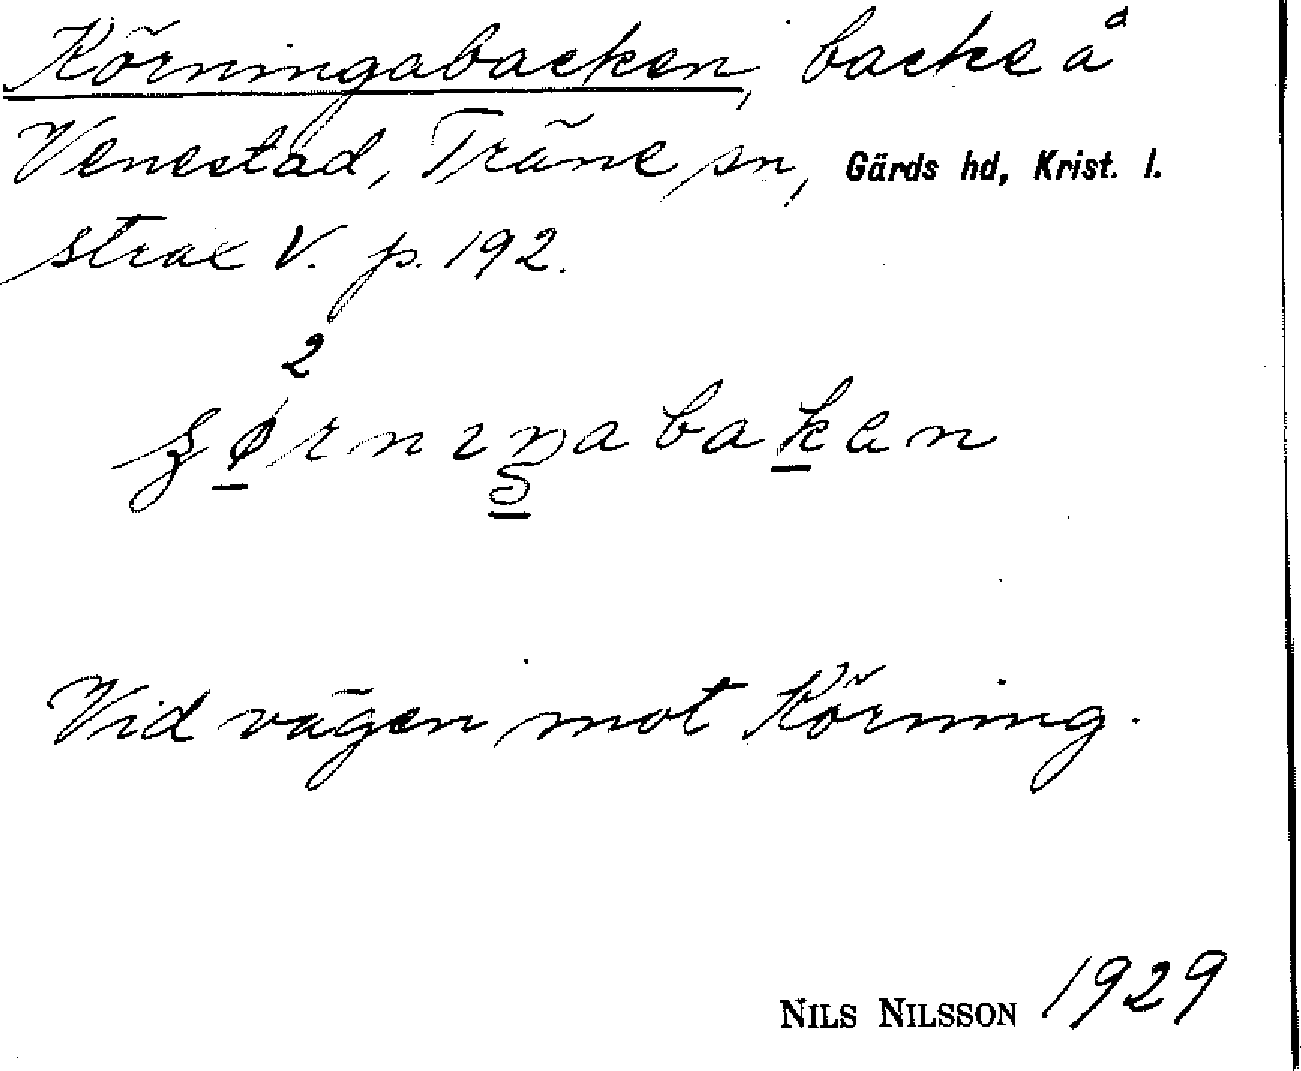 Körningabacken, backe å
Venestad, Träne sn, Gärds hd, Krist. l.
strax V. p. 192.
2
Vid vägen mot Körning.
NILS NILSSON 1929